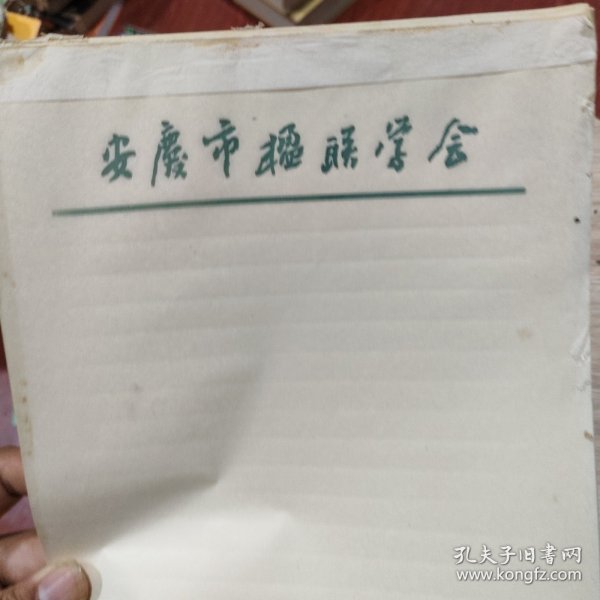 安慶市楹联学会
孔夫子旧书网
www.kongfz.com